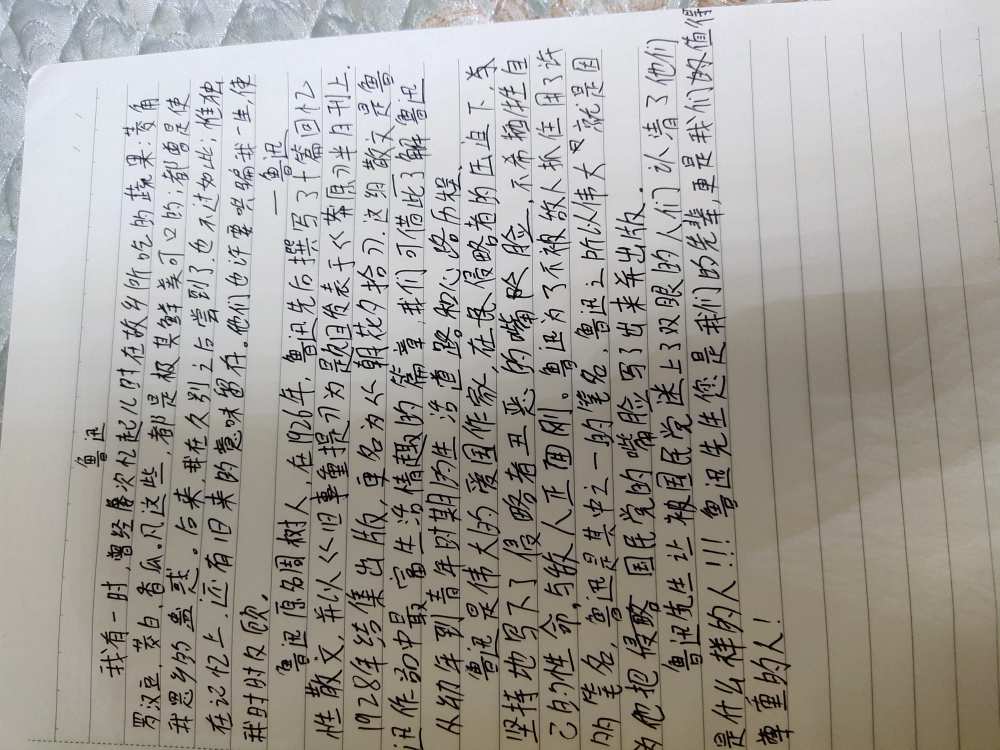 鲁迅
我有一时，曾经屡次忆起儿时在故乡所吃的蔬果：菱角
罗汉豆，茭白，香瓜。凡这些，都是极其鲜美可口的；都曾是使
我思乡的蛊惑。后来，我在久别之后尝到了，也不过如此；惟独
在记忆上，还有旧来的意味留存。他们也许要哄骗我一生，使
我时时反顾。
——鲁迅
鲁迅原名周树人，在1926年，鲁迅先后撰写了十篇回忆
性散文，并以《《旧事重提》为题目发表于《《莽原》半月刊上．
1928年结集出版，更名为《朝花夕拾》．这组散文是鲁
迅作品中最富生活情趣的篇章，我们可借此了解鲁迅
从幼年到青年时期的生活道路和心路历程．
鲁迅是伟大的爱国作家，在民侵略者的压迫下，
坚持地写下了侵略者丑恶的嘴脸，不希牺牲自
己的性命，与敌人正面刚。鲁迅为了不被敌人抓住用了许
多的笔名，鲁迅是其中之一的笔名，鲁迅之所以伟大只就是因
为他把侵略国民党的嘴脸写了出来并出版．
鲁迅先生让被国民党迷上了双眼的人们认清了他们
是什么样的人!!!鲁迅先生您是我们的先辈，更是我们的值得
尊重的人！